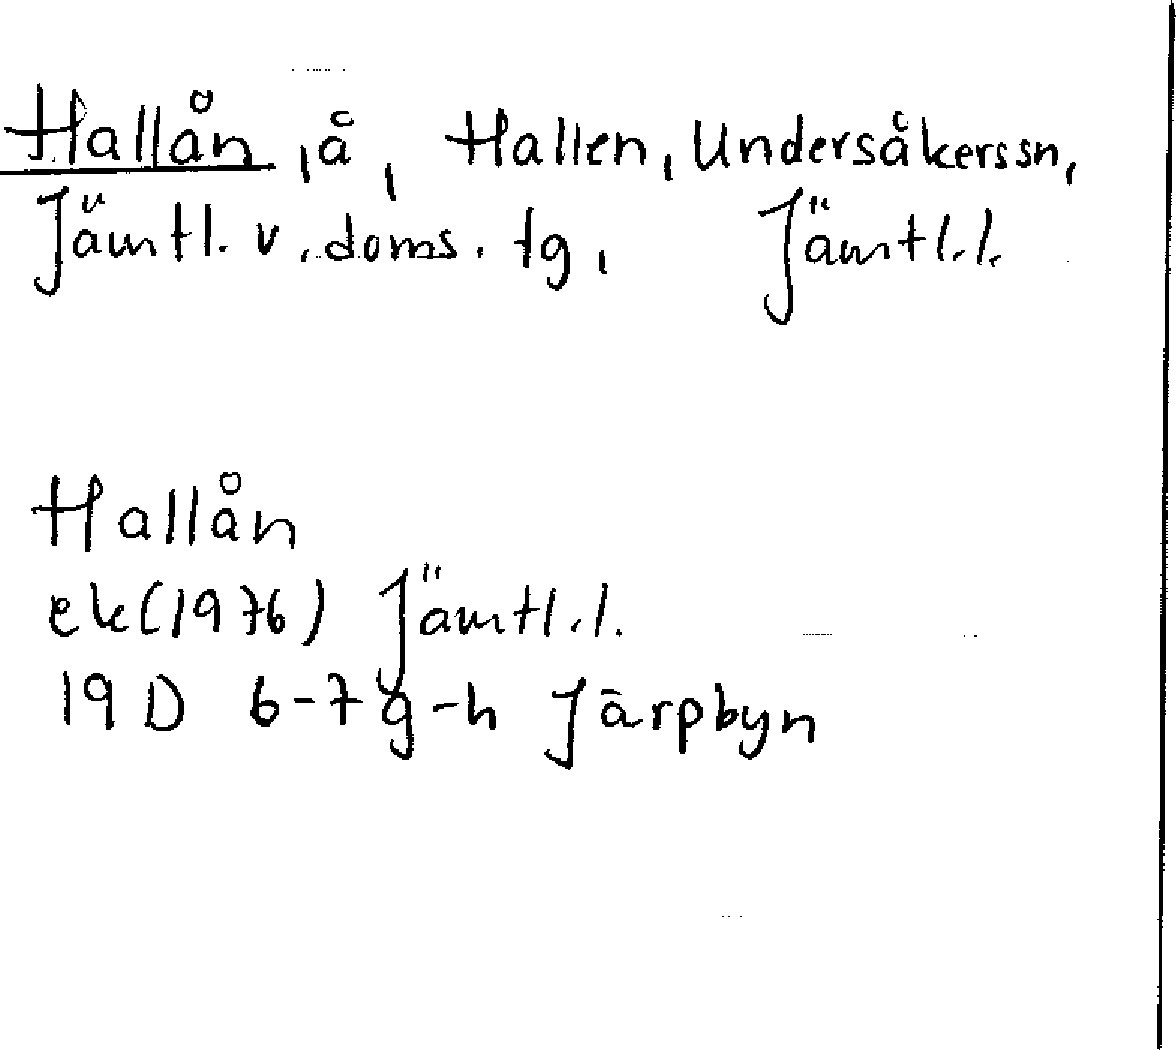 Hallån, å, Hallen, Undersåkers sn,
Jämtl. v. doms. tg, Jämtl.l.
Hallån
ek (1976) Jämtl.l.
19 D 6-7 g-h Järpbyn